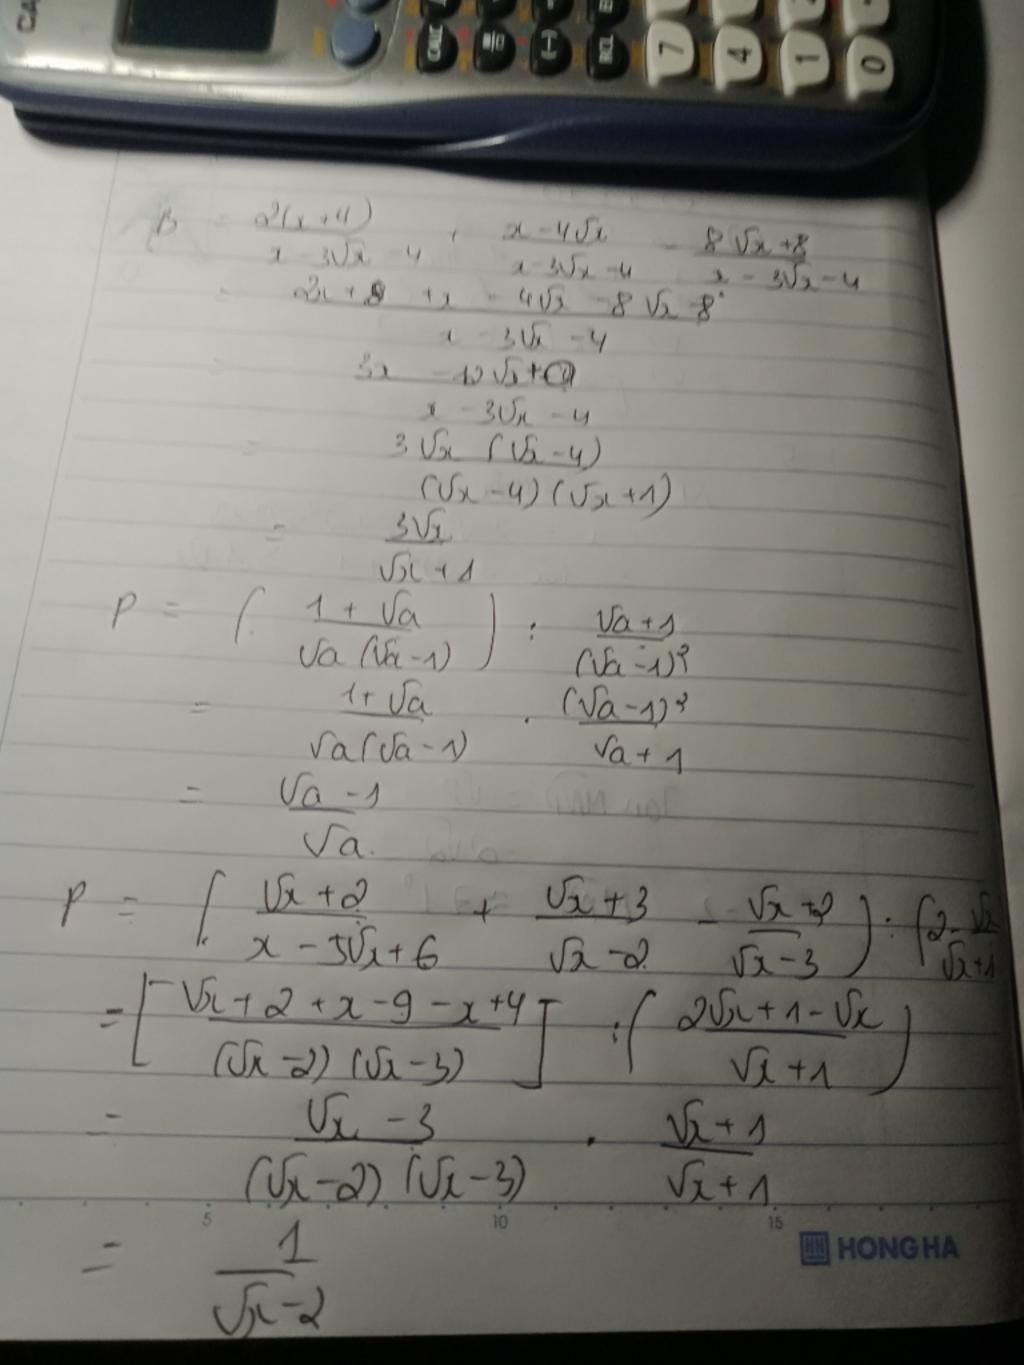 CA
CALC
(-)
RCL
7
4
1
0
B = 2(x+4) / x - 3√x - 4 + x - 4√x / x - 3√x - 4 - 8√x + 8 / x - 3√x - 4
= 2x + 8 + x - 4√x - 8√x - 8 / x - 3√x - 4
3x - 12√x / x - 3√x - 4
= 3√x (√x - 4) / (√x - 4)(√x + 1)
= 3√x / √x + 1
P = ( 1 + √a / √a (√a - 1) ) : √a + 1 / (√a - 1)²
= 1 + √a / √a (√a - 1) . (√a - 1)² / √a + 1
= √a - 1 / √a
P = ( √x + 2 / x - 5√x + 6 + √x + 3 / √x - 2 - √x + 2 / √x - 3 ) : ( 2 - √x / √x + 1
= [ √x + 2 + x - 9 - x + 4 / (√x - 2)(√x - 3) ] : ( 2√x + 1 - √x / √x + 1 )
= √x - 3 / (√x - 2)(√x - 3) . √x + 1 / √x + 1
5 10 15
= 1 / √x - 2
HONG HA